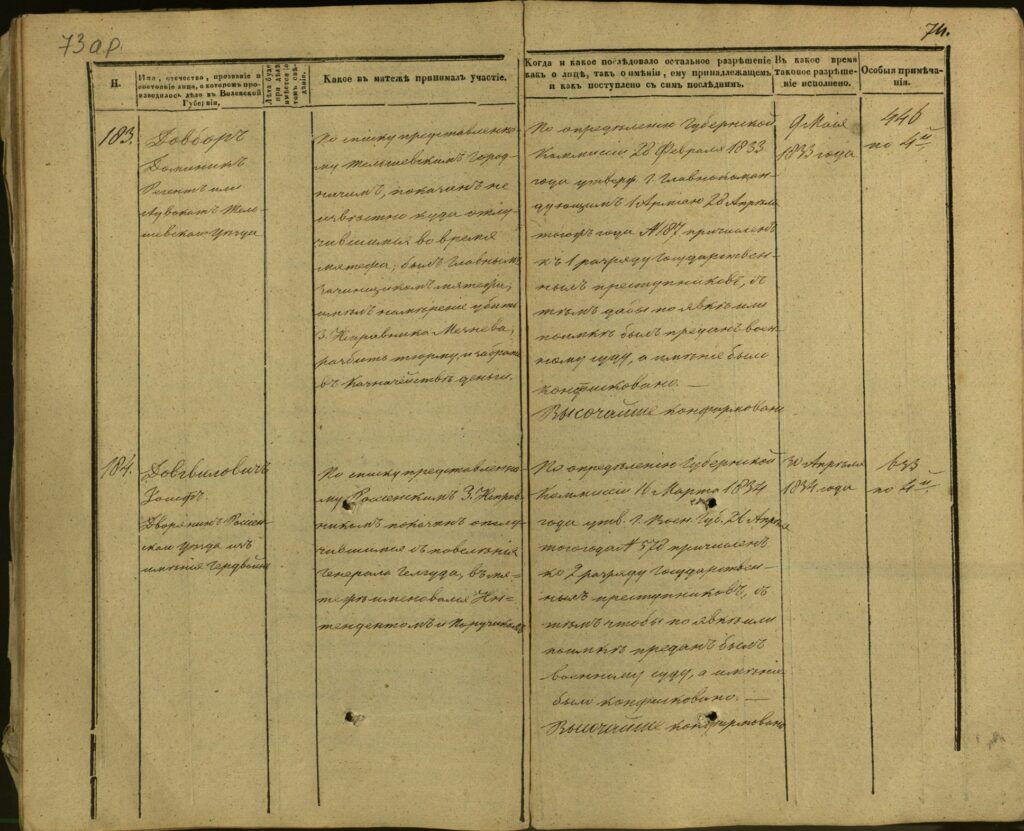 73 ар.
74.
Н.
Имя, отечество, прозваніе и
состояніе лица, о которомъ про-
изводилось дѣло въ Виленской
Губерніи,
Какое въ мятежѣ принималъ участіе.
Когда и какое послѣдовало остальное разрѣшеніе
какъ о лицѣ, такъ о имѣніи, ему принадлежащемъ
и какъ поступлено съ симъ послѣднимъ.
Въ какое время
таковое разрѣше-
ніе исполнено.
Особыя примѣча-
нія.
183.
Довборъ
Доминикъ
Регентъ или
Адвокатъ Тель-
шевскаго Уѣзда
По списку представленно-
му Тельшевскимъ Город-
ничимъ, показанъ не
извѣстно куда отлу-
чившимся во время
мятежа; былъ главнымъ
зачинщикомъ мятежа,
имѣлъ намѣреніе убить
З. Исправника Мечнева,
разбить тюрьму и забрать
въ Казначействѣ деньги.
По опредѣленію Губернской
Коммисіи 28 Февраля 1833
года утверж. Г. Главнокоман-
дующимъ 1 Арміею 28 Апрѣля
тогожъ года № 187 причисленъ
къ 1 разряду Государствен-
ныхъ преступниковъ, съ
тѣмъ дабы по явкѣ или
поимкѣ былъ преданъ воен-
ному суду, а имѣніе было
конфисковано. —
Высочайше конфирмовано
9 Мая
1833 года
446
по 4й
184.
Довгвиловичъ
Іосифъ
Дворянинъ Россіен-
скаго Уѣзда изъ
имѣнія
По списку представленно-
му Россіенскимъ З. Исправ-
никомъ показанъ отлу-
чившимся съ повелѣнія
Генерала Гелгуда, въ мя-
тежѣ именовался Ин-
тендентомъ и Поручикомъ
По опредѣленію Губернской
Коммисіи 16 Марта 1834
года утв. Г. Воен. Губ. 26 Апрѣля
тогогода № 578 причисленъ
ко 2 разряду Государствен-
ныхъ преступниковъ, съ
тѣмъ чтобы по явкѣ или
поимкѣ преданъ былъ
военному суду, а имѣніе
было конфисковано. —
Высочайше конфирмовано
30 Апрѣля
1834 года
633
по 4й